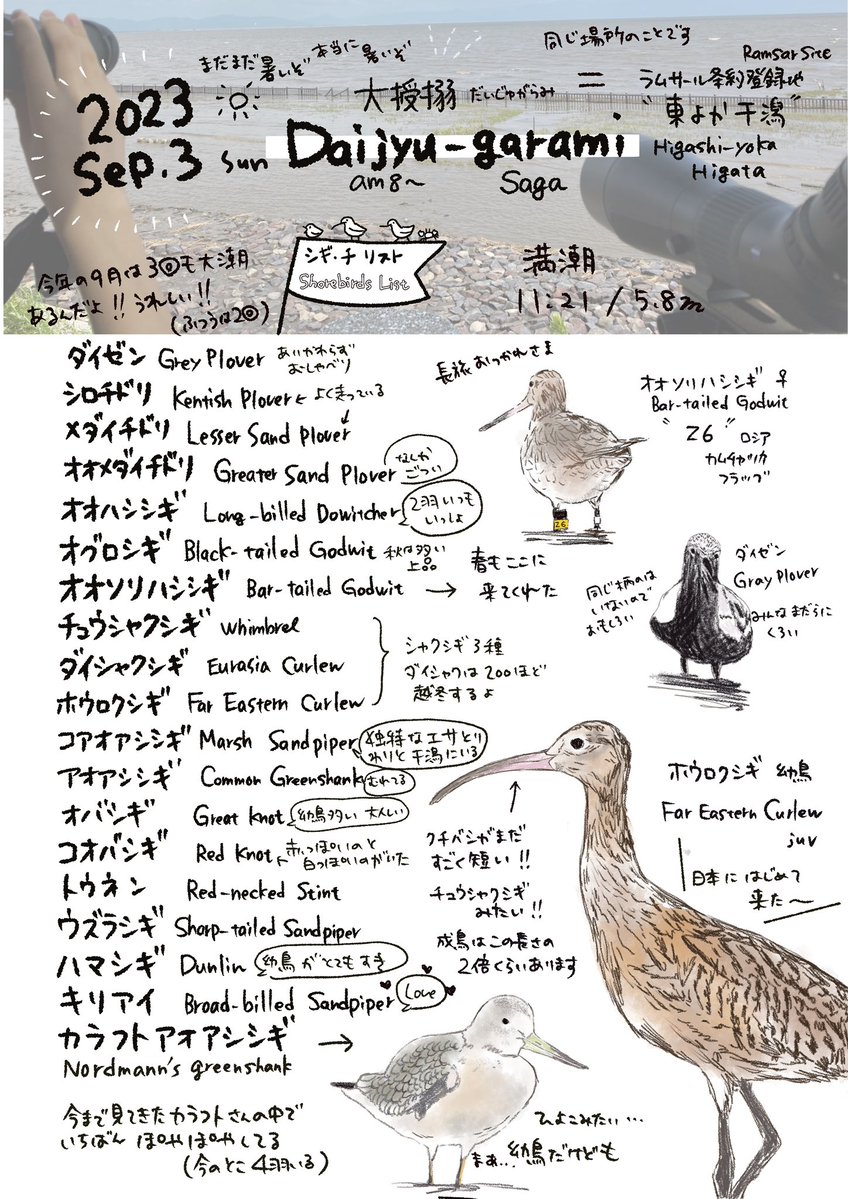 まだまだ暑いぞ
本当に暑いぞ
同じ場所のことです
2023
Sep.3 sun
大授搦 だいじゅがらみ
=
Ramsar Site
ラムサール条約登録地
"東よか干潟"
Higashi-yoka
Higata
Daijyu-garami
am8~
Saga
今年の9月は3回も大潮
あるんだよ!! うれしい!!
(ふつうは2回)
シギ・チ リスト
Shorebirds List
満潮
11:21 / 5.8m
ダイゼン Grey Plover あいかわらず
おしゃべり
シロチドリ Kentish Plover ← よく走っている
メダイチドリ Lesser Sand Plover
オオメダイチドリ Greater Sand Plover なしか
ごつい
オオハシシギ Long-billed Dowitcher 2羽いつも
いっしょ
オグロシギ Black-tailed Godwit 秋は多い
上品
オオソリハシシギ Bar-tailed Godwit → 春もここに
来てくれた
チュウシャクシギ Whimbrel
ダイシャクシギ Eurasia Curlew
ホウロクシギ Far Eastern Curlew
シャクシギ3種
ダイシャクは200ほど
越冬するよ
コアオアシシギ Marsh Sandpiper 独特なエサとり
わりと干潟にいる
アオアシシギ Common Greenshank むれてる
オバシギ Great Knot 幼鳥多い 大人しい
コオバシギ Red Knot 赤っぽいのと
白っぽいのがいた
トウネン Red-necked Stint
ウズラシギ Sharp-tailed Sandpiper
ハマシギ Dunlin 幼鳥がとてもすき
キリアイ Broad-billed Sandpiper Love
カラフトアオアシシギ →
Nordmann's greenshank
今まで見てきたカラフトさんの中で
いちばん ぽやぽやしてる
(今のとこ4羽いる)
長旅おつかれさま
オオソリハシシギ ♀
Bar-tailed Godwit
"Z6" ロシア
カムチャツカ
フラッグ
26
ダイゼン
Gray Plover
みんなまだらに
くろい
同じ柄のは
いないので
おもしろい
ホウロクシギ 幼鳥
Far Eastern Curlew
juv
日本にはじめて
来た~
クチバシがまだ
すごく短い!!
チュウシャクシギ
みたい!!
成鳥はこの長さの
2倍くらいあります
ひよこみたい...
まぁ... 幼鳥だけども